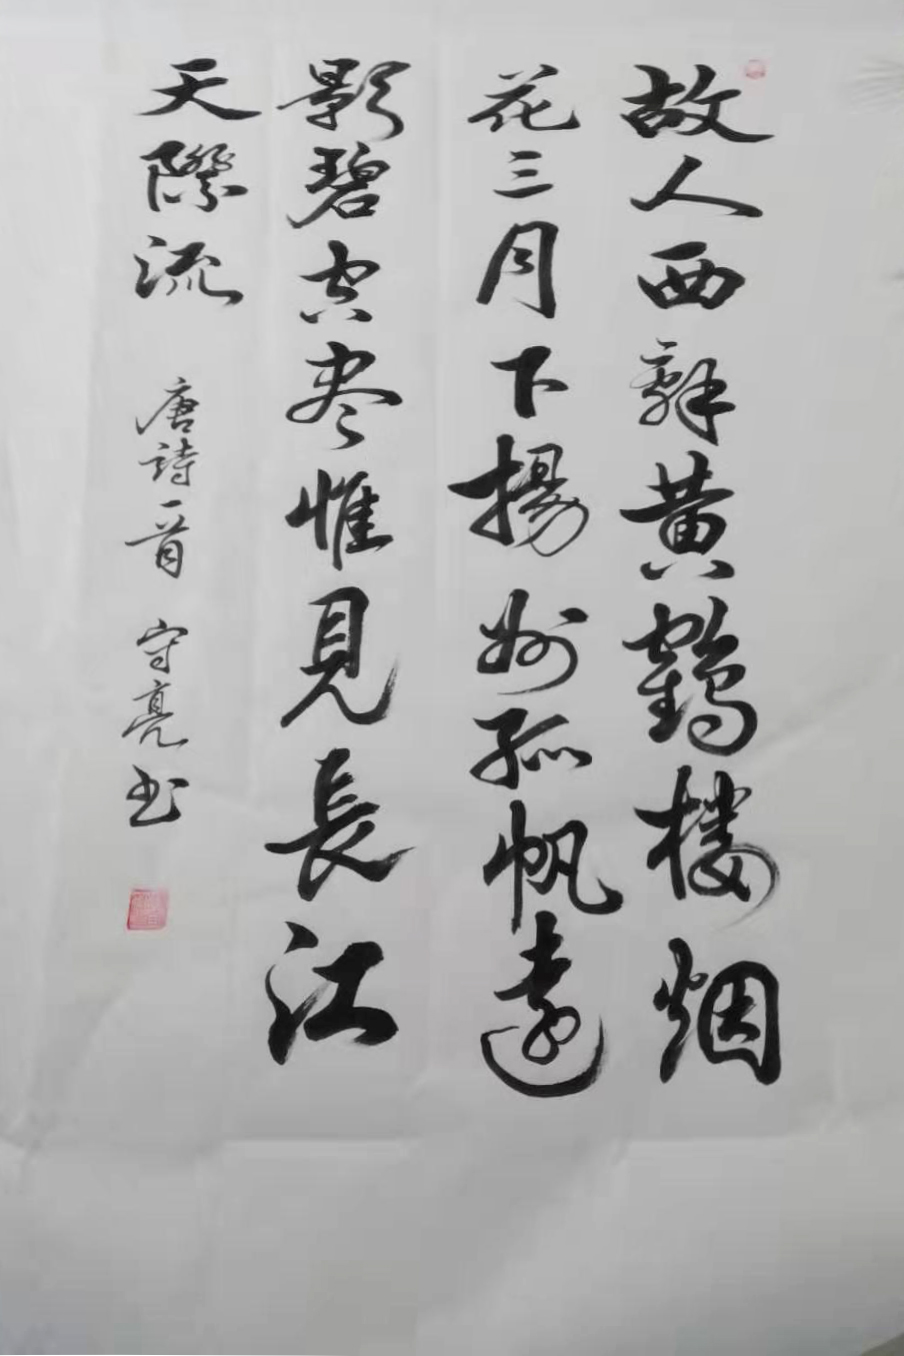 故人西辭黄鶴楼烟
花三月下揚州孤帆遠
影碧空尽惟見長江
天際流 唐詩一首 守亮书